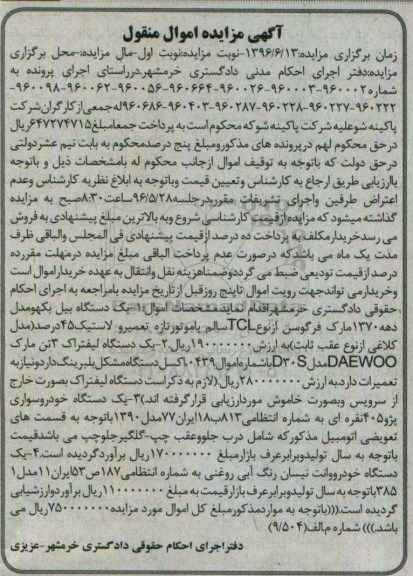 آگهی مزایده اموال منقول
زمان برگزاری مزایده:۱۳۹۶/۶/۱۳-نوبت مزایده:نوبت اول-مال مزایده:-محل برگزاری
مزایده:دفتر اجرای احکام مدنی دادگستری خرمشهر.درراستای اجرای پرونده به
شماره۹۶۰۰۰۲-۹۶۰۰۰۳-۹۶۰۰۲۶-۹۶۰۶۶۴-۹۶۰۰۵۶-۹۶۰۰۶۲-۹۶۰۰۹۸-
۹۶۰۲۲۲-۹۶۰۲۲۷-۹۶۰۲۲۸-۹۶۰۲۸۷-۹۶۰۴۰۳-۹۶۰۶۸۶له جمعی از کارگران شرکت
پاکینه شوعلیه شرکت پاکینه شوکه محکوم است به پرداخت جمعامبلغ۶۴۷۲۷۴۷۱۵ریال
درحق محکوم لهم درپرونده های مذکورومبلغ پنج درصدمحکوم به بابت نیم عشردولتی
درحق دولت که باتوجه به توقیف اموال ازجانب محکوم له بامشخصات ذیل و باتوجه
باارزیابی طریق ارجاع به کارشناس وتعیین قیمت وباتوجه به ابلاغ نظریه کارشناس وعدم
اعتراض طرفین واجرای تشریفات مقرردرجلسه۹۶/۵/۲۸ساعت۸:۳۰صبح به مزایده
گذاشته میشود که مزایده ازقیمت کارشناسی شروع وبه بالاترین مبلغ پیشنهادی به فروش
می رسدخریدارمکلف به پرداخت ده درصد ازقیمت پیشنهادی فی المجلس والباقی ظرف
مدت یک ماه می باشدکه درصورت عدم پرداخت الباقی مبلغ مزایده درمهلت مقررده
درصد ازقیمت تودیعی ضبط می گرددوضمناهزینه نقل وانتقال به عهده خریداراموال است
وخریدارمی تواندجهت رویت اموال تاپنج روزقبل ازتاریخ مزایده بامراجعه به اجرای احکام
حقوقی دادگستری خرمشهراقدام نماید.مشخصات اموال:۱-یک دستگاه بیل بکهومدل
دهه۱۳۷۰مارک فرگوسن ازنوعTCLسالم باموتورتازه تعمیرو لاستیک۴۵درصد(مدل
کلاغی ازنوع عقب ثابت)به ارزش۱۹۰۰۰۰۰۰۰ریال.۲-یک دستگاه لیفتراک ۳تن مارک
DAEWOOمدلD۳۰Sباشماره اموال۰۴۳۹ گسل دستگاه مشکل بلبرینگ داردونیازبه
تعمیرات دارد.به ارزش۲۸۰۰۰۰۰۰۰ریال(لازم به ذکراست دستگاه لیفتراک بصورت خارج
از سرویس وبصورت خاموش موردارزیابی قرارگرفته اند)۳-یک دستگاه خودروسواری
پژو۴۰۵نقره ای به شماره انتظامی۸۱۳ب۱۸ایران۷۷مدل۱۳۹۰باتوجه به قسمت های
تعویضی اتومبیل مذکورکه شامل درب جلووعقب چپ-گلگیرجلوچپ می باشدقیمت
باتوجه به سال تولیدوبرابرعرف بازارمبلغ ۱۷۰۰۰۰۰۰۰ریال برآوردگردیده است.۴-یک
دستگاه خودرووانت نیسان رنگ آبی روغنی به شماره انتظامی۱۸۷ص۵۳ایران۱۱مدل۱
۳۸۵باتوجه به سال تولیدوبرابرعرف بازارقیمت به مبلغ ۱۱۰۰۰۰۰۰۰ریال برآوردوارزشیابی
گردیده است.(((باتوجه به مواردمذکورمبلغ کل اموال مورد مزایده۷۵۰۰۰۰۰۰۰ریال می
باشد.))) شماره م.الف(۹/۵۰۴)
دفتراجرای احکام حقوقی دادگستری خرمشهر-عزیزی